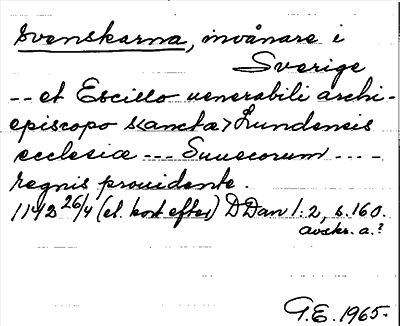 Svenskarna, invånare i
Sverige
-- et Escillo uenerabili archi-
episcopo s<ancta>Lundensis
ecclesiæ --- Suuecorum ---
regnis prouidente.
1142 26/4 (el. kort efter) DDan 1:2, s.160.
avskr. a.?
G.E. 1965.